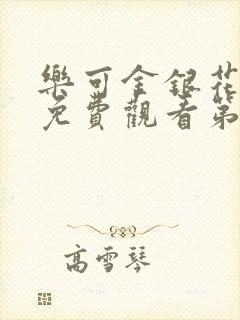 樂可金銀花
免費觀看第
高雪琴